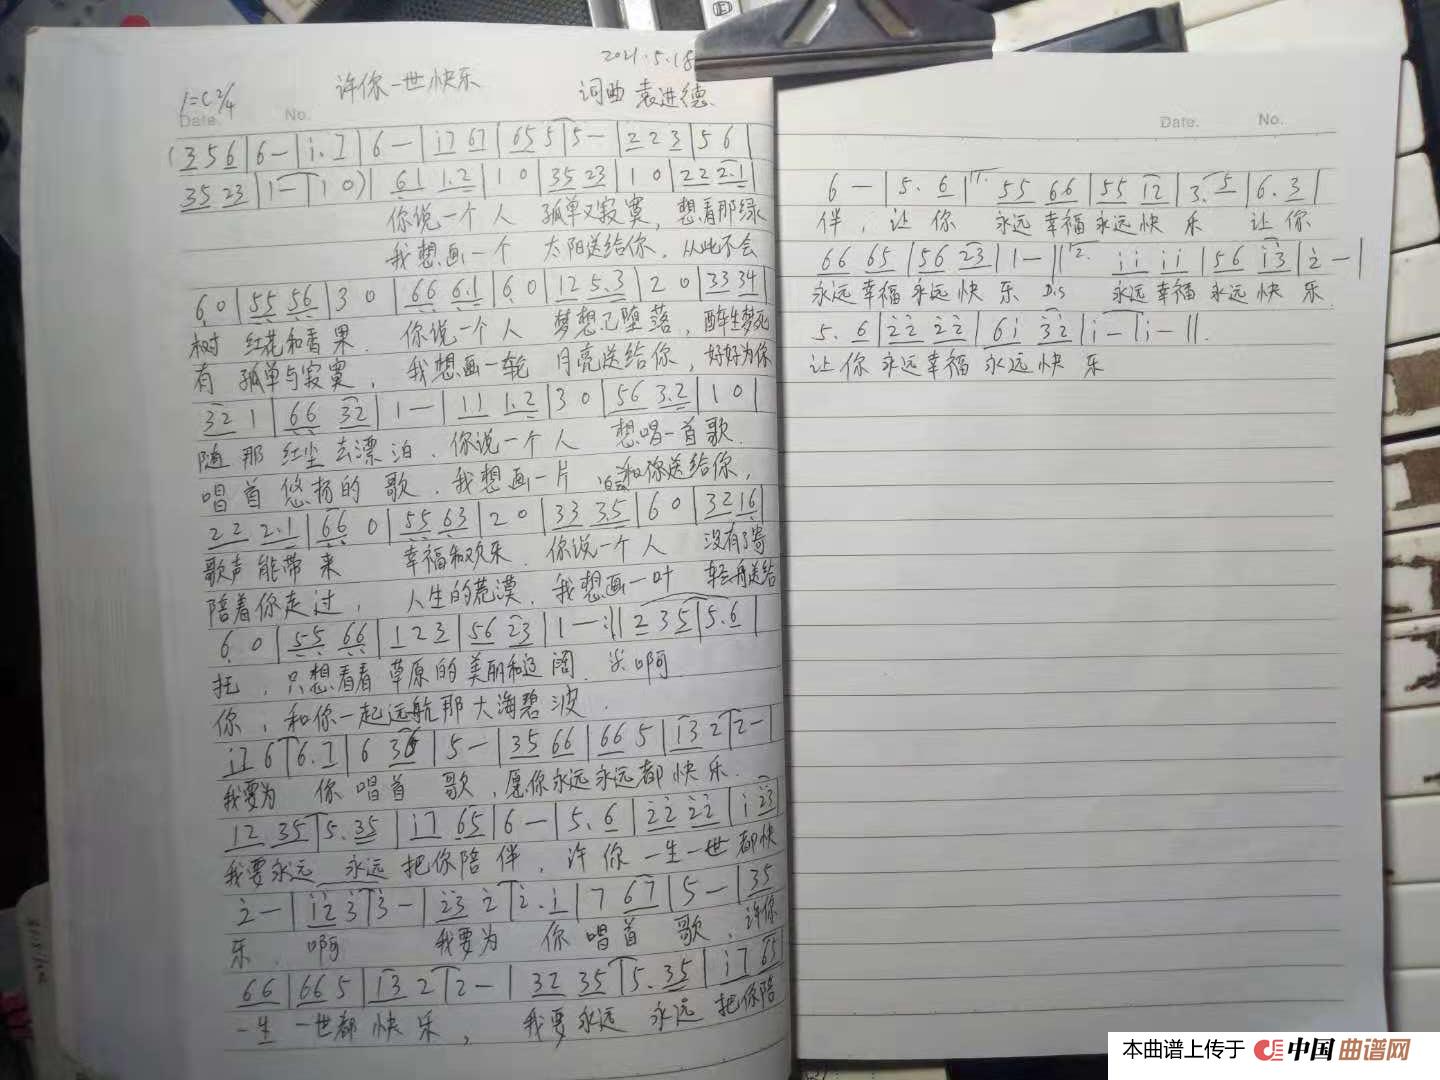 2021.5.18
许你一世快乐
1=C 2/4
词曲 袁进德
Date. No.
(3 5 6 | 6 - | i. 7 | 6 - | i7 67 | 65 5 | 5 - | 2 2 3 | 5 6 |
35 23 | 1 - | 1 0) | 61 1.2 | 1 0 | 35 23 | 1 0 | 22 2.1 |
你说一个人 孤单又寂寞，想看那绿
我想画一个 太阳送给你，从此不会
6 0 | 55 56 | 3 0 | 66 6.1 | 6 0 | 12 5.3 | 2 0 | 33 34 |
树 红花和香果．你说一个人 梦想已堕落，醉生梦死
有 孤单与寂寞，我想画一轮 月亮送给你，好好为你
32 1 | 66 32 | 1 - | 11 1.2 | 3 0 | 56 3.2 | 1 0 |
随那红尘去漂泊．你说一个人 想唱一首歌．
唱首悠扬的歌．我想画一片 和你送给你，
22 2.1 | 66 0 | 55 63 | 2 0 | 33 35 | 6 0 | 32 16 |
歌声能带来 幸福和欢乐．你说一个人 没有了寄
陪着你走过， 人生的荒漠．我想画一叶 轻舟送给
6 0 | 55 66 | 1 2 3 | 56 23 | 1 - :|| 2 3 5 | 5.6 |
托，只想看看草原的美丽和辽阔． 啊
你，和你一起远航那大海碧波．
i7 6 | 6.7 | 6 36 | 5 - | 35 66 | 66 5 | i3 2 | 2 - |
我要为 你唱首 歌，愿你永远永远都快乐．
12 35 | 5.35 | i7 65 | 6 - | 5. 6 | 22 22 | i 23 |
我要永远 永远把你陪伴，许你一生一世都快
2 - | i2 3 | 3 - | 23 2 | 2. i | 7 67 | 5 - | 35
乐．啊 我要为 你唱首 歌，许你
66 | 66 5 | i3 2 | 2 - | 32 35 | 5.35 | i7 65
一生一世都快乐， 我要永远 永远把你陪
Date. No.
6 - | 5. 6 | 1. 55 66 | 55 12 | 3. 5 | 6. 3 |
伴，让你 永远幸福永远快乐 让你
66 65 | 56 23 | 1 - || 2. ii ii | 56 i3 | 2 - |
永远幸福永远快乐 D.S 永远幸福永远快乐．
5. 6 | 22 22 | 6i 32 | i - | i - ||.
让你永远幸福永远快乐
本曲谱上传于 中国曲谱网